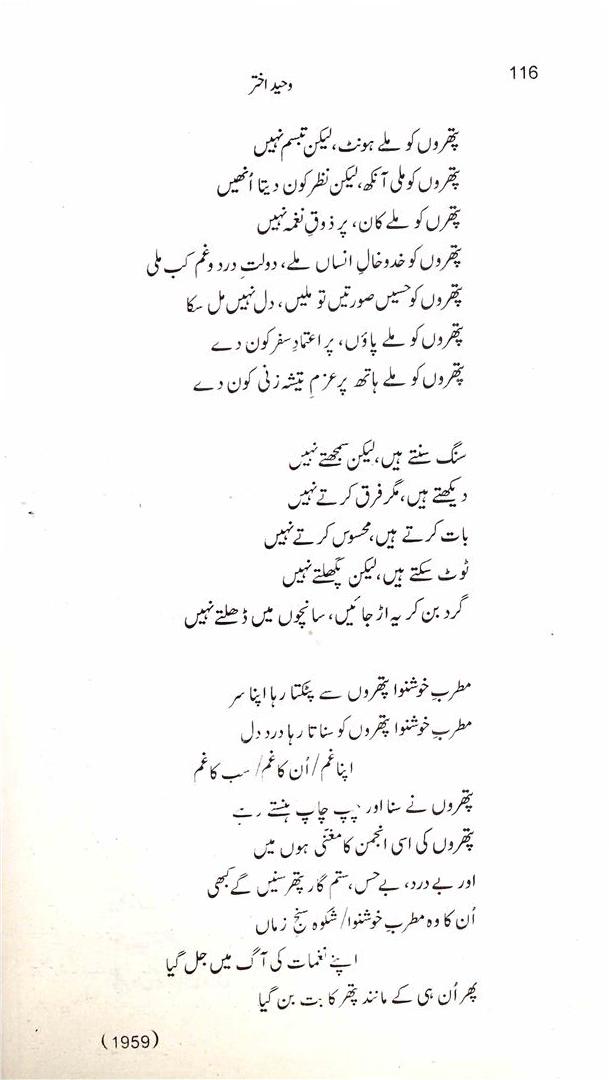 116
وحید اختر
پتھروں کو ملے ہونٹ، لیکن تبسم نہیں
پتھروں کو ملی آنکھ، لیکن نظر کون دیتا اُنھیں
پتھرں کو ملے کان، پر ذوقِ نغمہ نہیں
پتھروں کو خدوخالِ انساں ملے، دولتِ درد و غم کب ملی
پتھروں کو حسیں صورتیں تو ملیں، دل نہیں مل سکا
پتھروں کو ملے پاؤں، پر اعتمادِ سفر کون دے
پتھروں کو ملے ہاتھ پر عزمِ تیشہ زنی کون دے
سنگ سنتے ہیں، لیکن سمجھتے نہیں
دیکھتے ہیں، مگر فرق کرتے نہیں
بات کرتے ہیں، محسوس کرتے نہیں
ٹوٹ سکتے ہیں، لیکن پگھلتے نہیں
گرد بن کر یہ اڑ جائیں، سانچوں میں ڈھلتے نہیں
مطربِ خوشنوا پتھروں سے پٹکتا رہا اپنا سر
مطربِ خوشنوا پتھروں کو سناتا رہا دردِ دل
اپنا غم/ اُن کا غم/ سب کا غم
پتھروں نے سنا اور چپ چاپ ہنستے رہے
پتھروں کی اسی انجمن کا مغنّی ہوں میں
اور بے درد، بے حس، ستم گار پتھر سنیں گے کبھی
اُن کا وہ مطربِ خوشنوا/ شکوہ سنجِ زماں
اپنے نغمات کی آگ میں جل گیا
پھر اُن ہی کے مانند پتھر کا بت بن گیا
(1959)